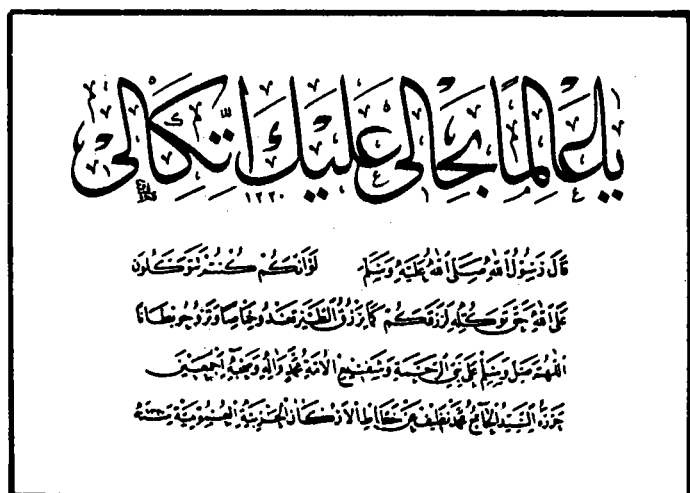 يا عالما بحالي عليك اتكالي
١٣٣٠
قال رسول الله صلى الله عليه وسلم لو أنكم كنتم توكلون
على الله حق توكله لرزقكم كما يرزق الطير تغدو خماصا وتروح بطانا
اللهم صل وسلم على نبي الرحمة وشفيع الأمة محمد وآله وصحبه أجمعين
حرره السيد الحاج محمد نظيف من خطاط الأركان الحربية العمومية سنة